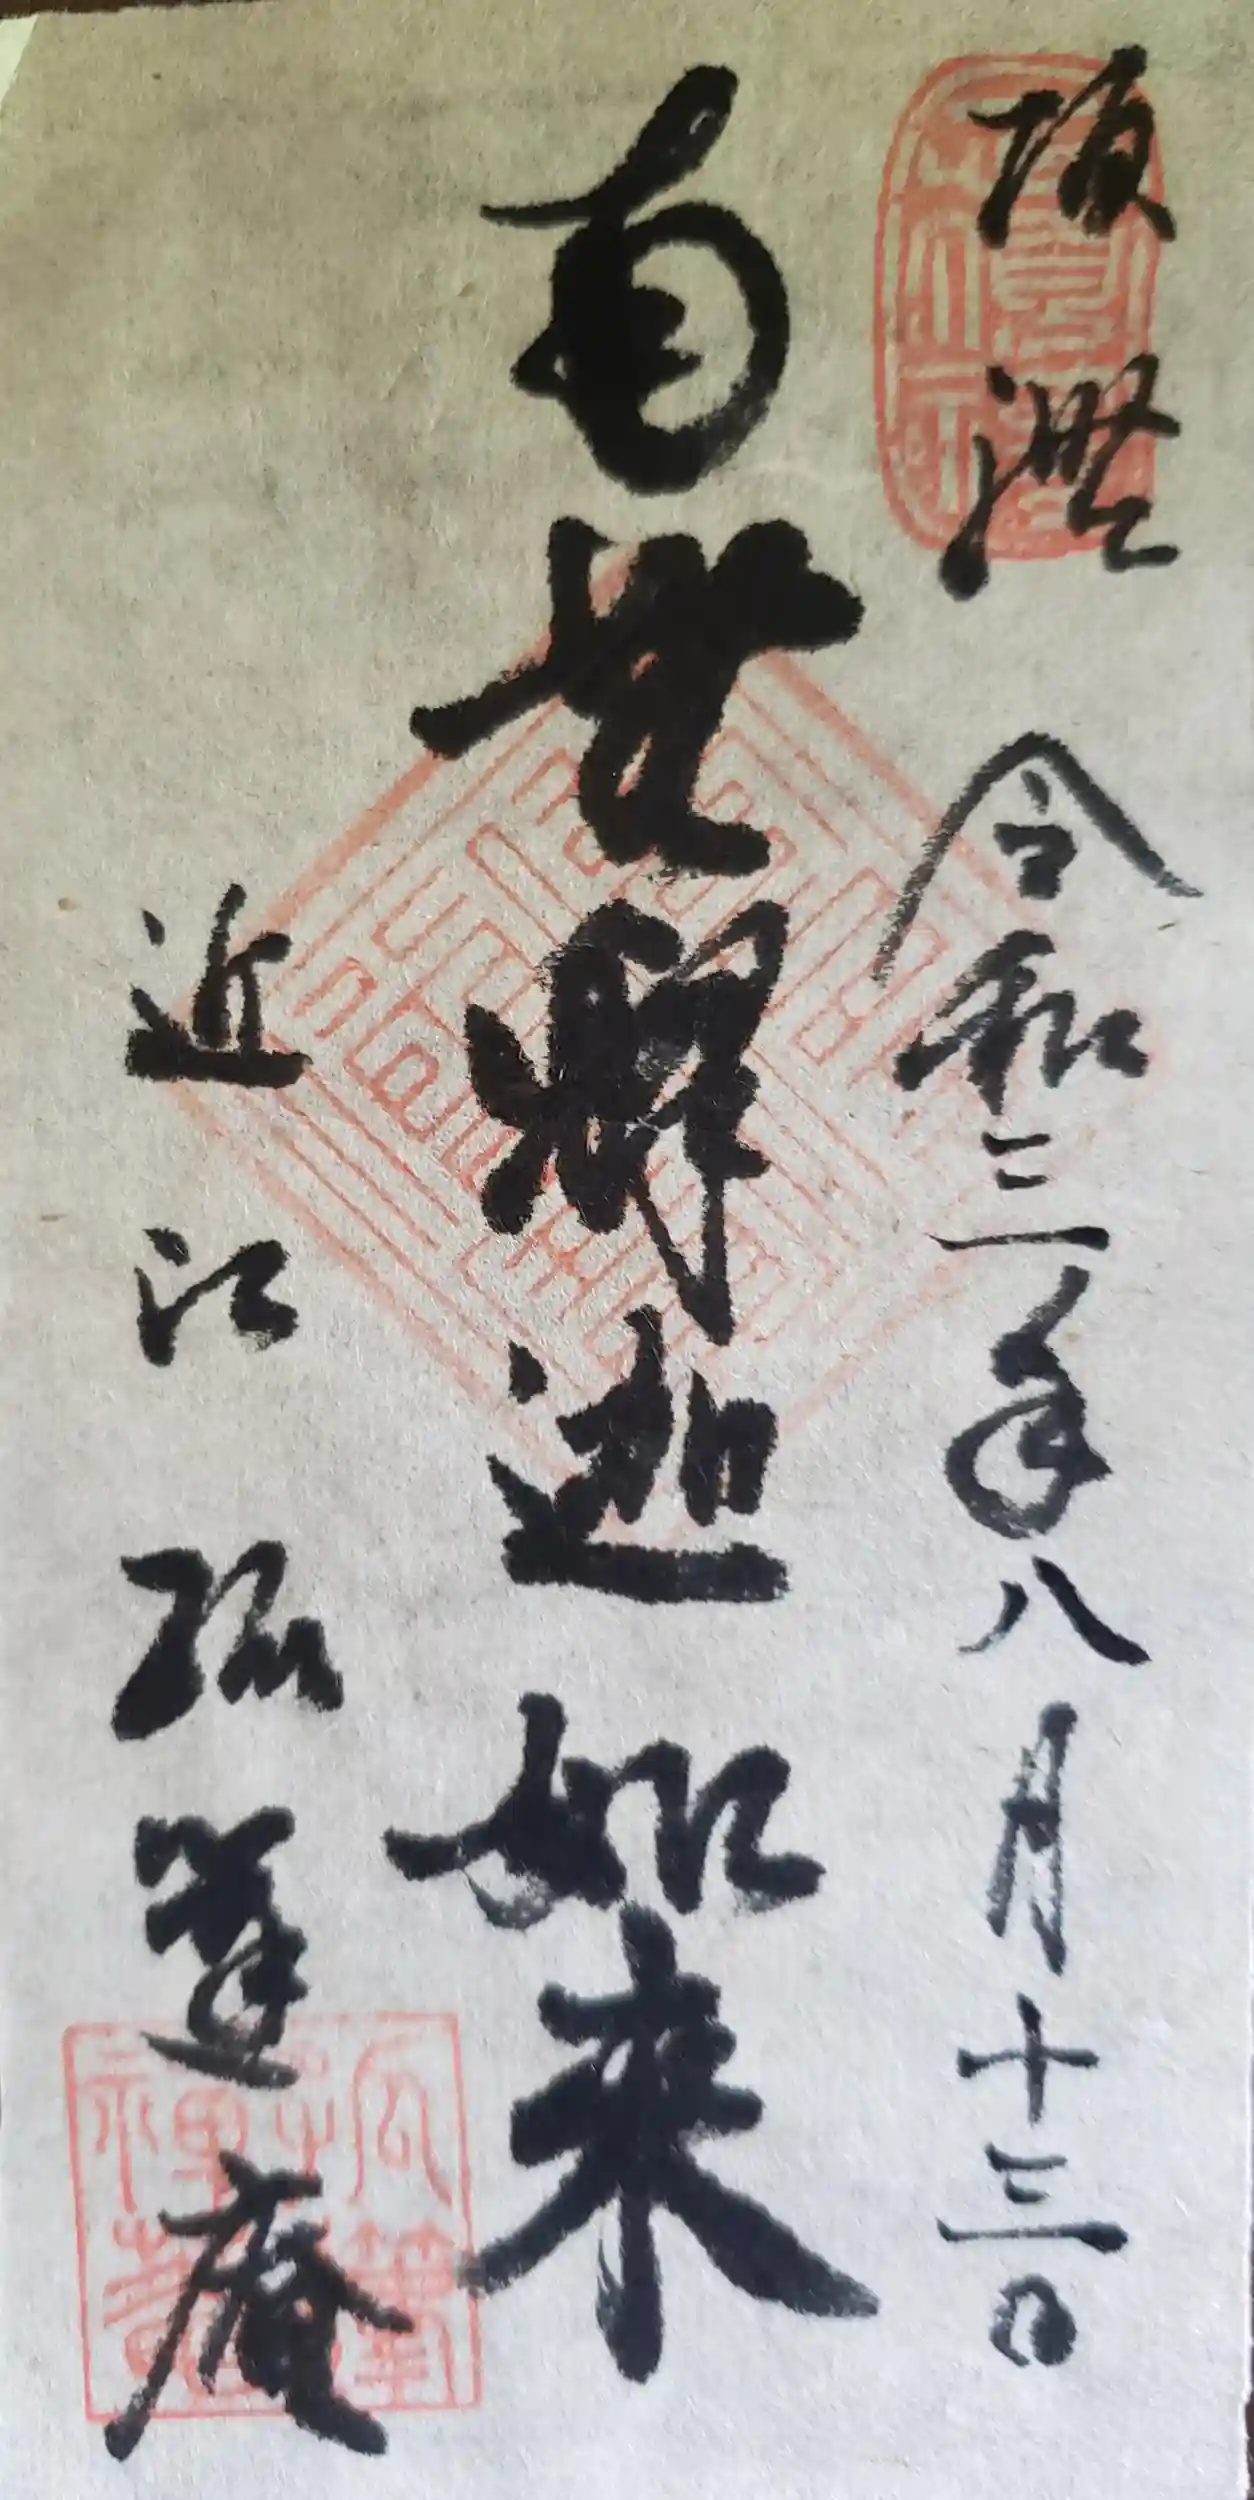 令和三年八月十三日
南無釋迦如来
近江孤篷庵